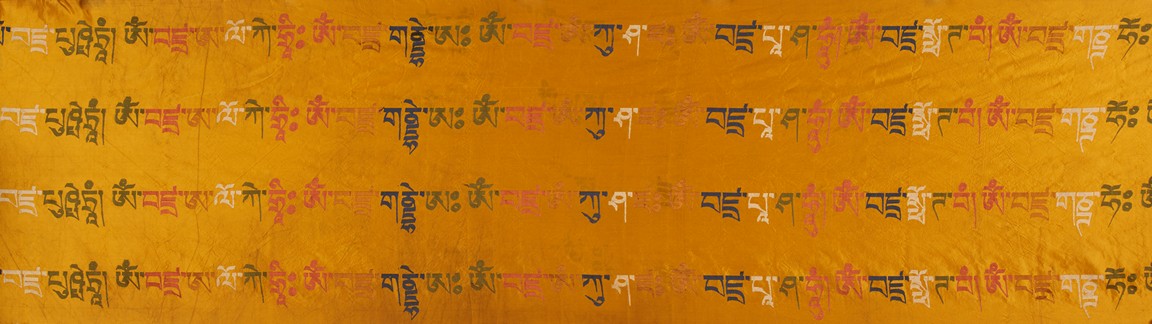 བཛྲ་པུཥྤེ་ཧཱུྃ། ཨོཾ་བཛྲ་ཨ་ལོ་ཀེ་ཧྲཱིཿ ཨོཾ་བཛྲ་གནྡྷེ་ཨཿ ཨོཾ་བཛྲ་ཀུ་ཤ་བཛྲ་པཱ་ཤ་ཧཱུྃ ཨོཾ་བཛྲ་སྥོ་ཊ་བཾ། ཨོཾ་བཛྲ་གཎྛ་ཧོཿ
བཛྲ་པུཥྤེ་ཧཱུྃ། ཨོཾ་བཛྲ་ཨ་ལོ་ཀེ་ཧྲཱིཿ ཨོཾ་བཛྲ་གནྡྷེ་ཨཿ ཨོཾ་བཛྲ་ཀུ་ཤ་བཛྲ་པཱ་ཤ་ཧཱུྃ ཨོཾ་བཛྲ་སྥོ་ཊ་བཾ། ཨོཾ་བཛྲ་གཎྛ་ཧོཿ
བཛྲ་པུཥྤེ་ཧཱུྃ། ཨོཾ་བཛྲ་ཨ་ལོ་ཀེ་ཧྲཱིཿ ཨོཾ་བཛྲ་གནྡྷེ་ཨཿ ཨོཾ་བཛྲ་ཀུ་ཤ་བཛྲ་པཱ་ཤ་ཧཱུྃ ཨོཾ་བཛྲ་སྥོ་ཊ་བཾ། ཨོཾ་བཛྲ་གཎྛ་ཧོཿ
བཛྲ་པུཥྤེ་ཧཱུྃ། ཨོཾ་བཛྲ་ཨ་ལོ་ཀེ་ཧྲཱིཿ ཨོཾ་བཛྲ་གནྡྷེ་ཨཿ ཨོཾ་བཛྲ་ཀུ་ཤ་བཛྲ་པཱ་ཤ་ཧཱུྃ ཨོཾ་བཛྲ་སྥོ་ཊ་བཾ། ཨོཾ་བཛྲ་གཎྛ་ཧོཿ